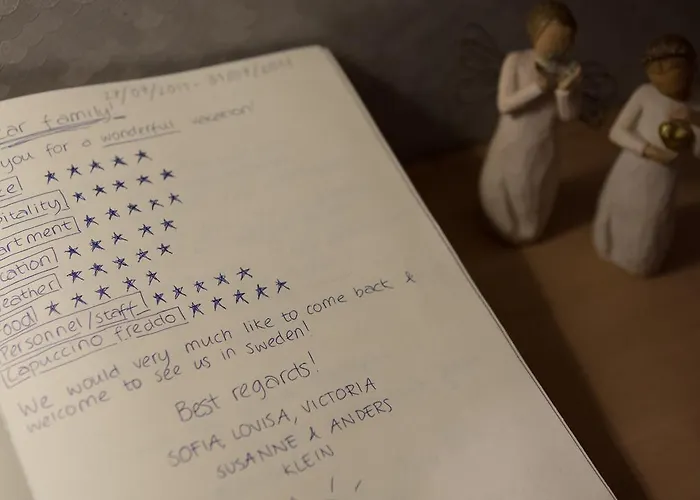 ar family!
you for a wonderful vacation!
★★★★★
pitality ★★★★★
artment ★★★★★
cation ★★★★★
eather ★★★★★
ood ★★★★★
Personnel/staff ★★★★★
Capuccino freddo ★★★★★
We would very much like to come back &
welcome to see us in Sweden!
Best regards!
SOFIA, LOVISA, VICTORIA
SUSANNE & ANDERS
KLEIN